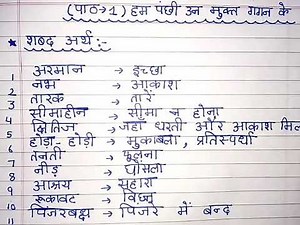 (पाठ→1) हम पंछी उन मुक्त गगन के
★ शब्द अर्थ :-
1 अरमान → इच्छा
2 नभ → आकाश
3 तारक → तारें
4 सीमाहीन → सीमा न होना
5 क्षितिज → जहाँ धरती और आकाश मिल
6 होड़ा-होड़ी → मुकाबला, प्रतिस्पर्धा
7 तनती → फूलना
8 नीड़ → घोंसला
9 आश्रय → सहारा
10 रूकावट → विघ्न
11 पिंजरबद्ध → पिंजरे में बन्द